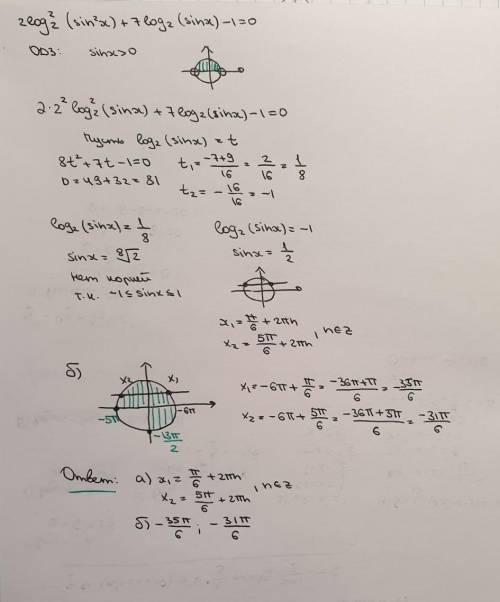 2log₂²(sin²x)+7log₂(sinx)-1=0
ОДЗ: sinx>0
2·2²log₂²(sinx)+7log₂(sinx)-1=0
Пусть log₂(sinx)=t
8t²+7t-1=0 t₁=(-7+9)/16=2/16=1/8
D=49+32=81 t₂=-16/16=-1
log₂(sinx)=1/8 log₂(sinx)=-1
sinx=⁸√2 sinx=1/2
нет корней
т.к. -1≤sinx≤1
x₁=π/6+2πn
x₂=5π/6+2πn, n∈z
б) x₂ x₁
-5π -6π
-13π/2
x₁=-6π+π/6=(-36π+π)/6=-35π/6
x₂=-6π+5π/6=(-36π+5π)/6=-31π/6
Ответ: а) x₁=π/6+2πn
x₂=5π/6+2πn, n∈z
б) -35π/6; -31π/6